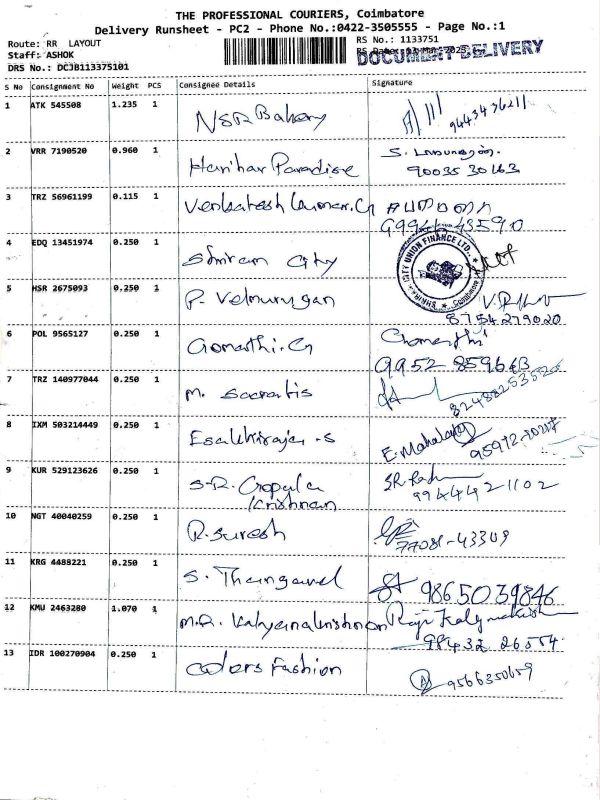 THE PROFESSIONAL COURIERS, Coimbatore
Delivery Runsheet - PC2 - Phone No.:0422-3505555 - Page No.:1
Route: RR LAYOUT
RS No.: 1133751
Staff: ASHOK
DOCUMENT DELIVERY
DRS No.: DCJB113375101
S No Consignment No Weight PCS Consignee Details Signature
1 ATK 545508 1.235 1 NSR Bakery 9443436211
2 VRR 7190520 0.960 1 Harihar Paradise S.
90035 30163
3 TRZ 56961199 0.115 1 Venkatesh Kumar.G
43590
CITY UNION FINANCE LTD.,
4 EDQ 13451974 0.250 1 Shriram City
5 HSR 2675093 0.250 1 P. Velmurugan
8754279020
6 POL 9565127 0.250 1 Gomathi.G Gomathi
9952 859643
7 TRZ 140977044 0.250 1 M. Socratis
8 IXM 503214449 0.250 1 Esakkiraja.S E.Mahalaxmi
95972-20217
9 KUR 529123626 0.250 1 S.R. Gopala SR.
Krishnan 9944421102
10 NGT 40040259 0.250 1 R. Suresh
77081-43309
11 KRG 4488221 0.250 1 S. Thangavel 9865039846
12 KMU 2463280 1.070 1 M.R. Kalyanakrishnan
98432 26554
13 IDR 100270904 0.250 1 Colors Fashion
9566350659